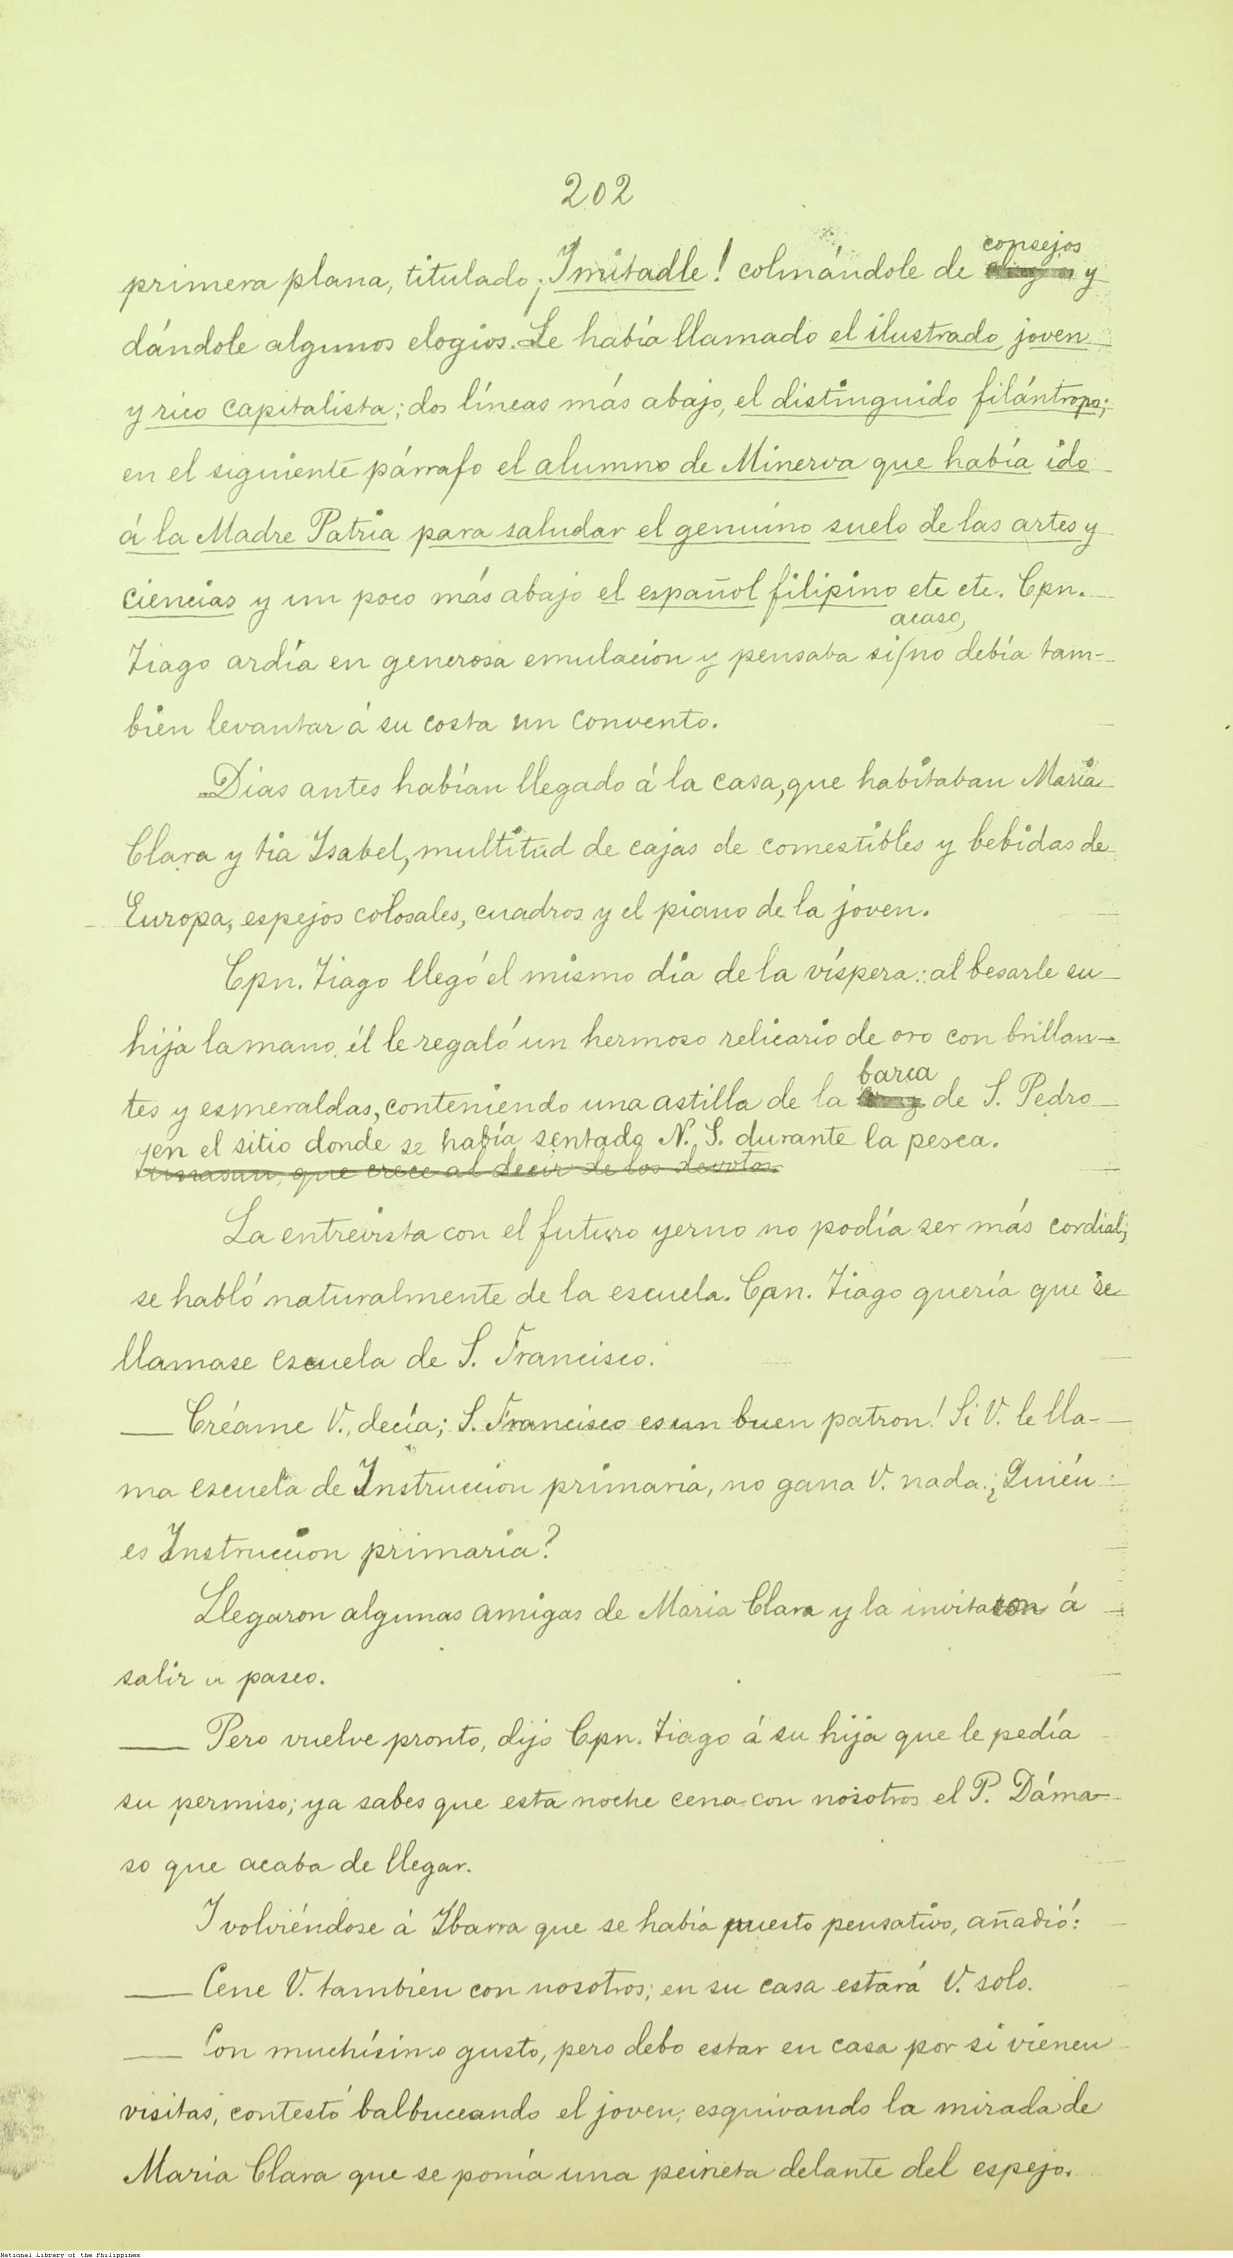 202
consejos
primera plana, titulado ¡Imitadle! colmándole de y
dándole algunos elogios. Le había llamado el ilustrado joven
y rico capitalista; dos líneas más abajo, el distinguido filántropo;
en el siguiente párrafo el alumno de Minerva que había ido
á la Madre Patria para saludar el genuino suelo de las artes y
ciencias y un poco más abajo el español filipino etc etc. Cpn.
acaso,
Tiago ardía en generosa emulacion y pensaba si no debía tam-
bien levantar á su costa un convento.
Dias antes habían llegado á la casa, que habitaban María
Clara y tia Isabel, multitud de cajas de comestibles y bebidas de
Europa, espejos colosales, cuadros y el piano de la joven.
Cpn. Tiago llegó el mismo día de la víspera: al besarle su
hija la mano, él le regaló un hermoso relicario de oro con brillan-
barca
tes y esmeraldas, conteniendo una astilla de la de S. Pedro
yen el sitio donde se había sentado N. S. durante la pesca.
que crece al decir de los devotos.
La entrevista con el futuro yerno no podía ser más cordial;
se habló naturalmente de la escuela. Cpn. Tiago quería que se
llamase escuela de S. Francisco.
— Créame V., decía; S. Francisco es un buen patron! Si V. le lla-
ma escuela de Instruccion primaria, no gana V. nada. ¿Quién
es Instruccion primaria?
Llegaron algunas amigas de Maria Clara y la invitaron á
salir a paseo.
— Pero vuelve pronto, dijo Cpn. Tiago á su hija que le pedía
su permiso; ya sabes que esta noche cena con nosotros el P. Dáma-
so que acaba de llegar.
I volviéndose á Ibarra que se había puesto pensativo, añadió:
— Cene V. también con nosotros; en su casa estará V. solo.
— Con muchísimo gusto, pero debo estar en casa por si vienen
visitas, contestó balbuceando el joven, esquivando la mirada de
Maria Clara que se ponía una peineta delante del espejo.
National Library of the Philippines